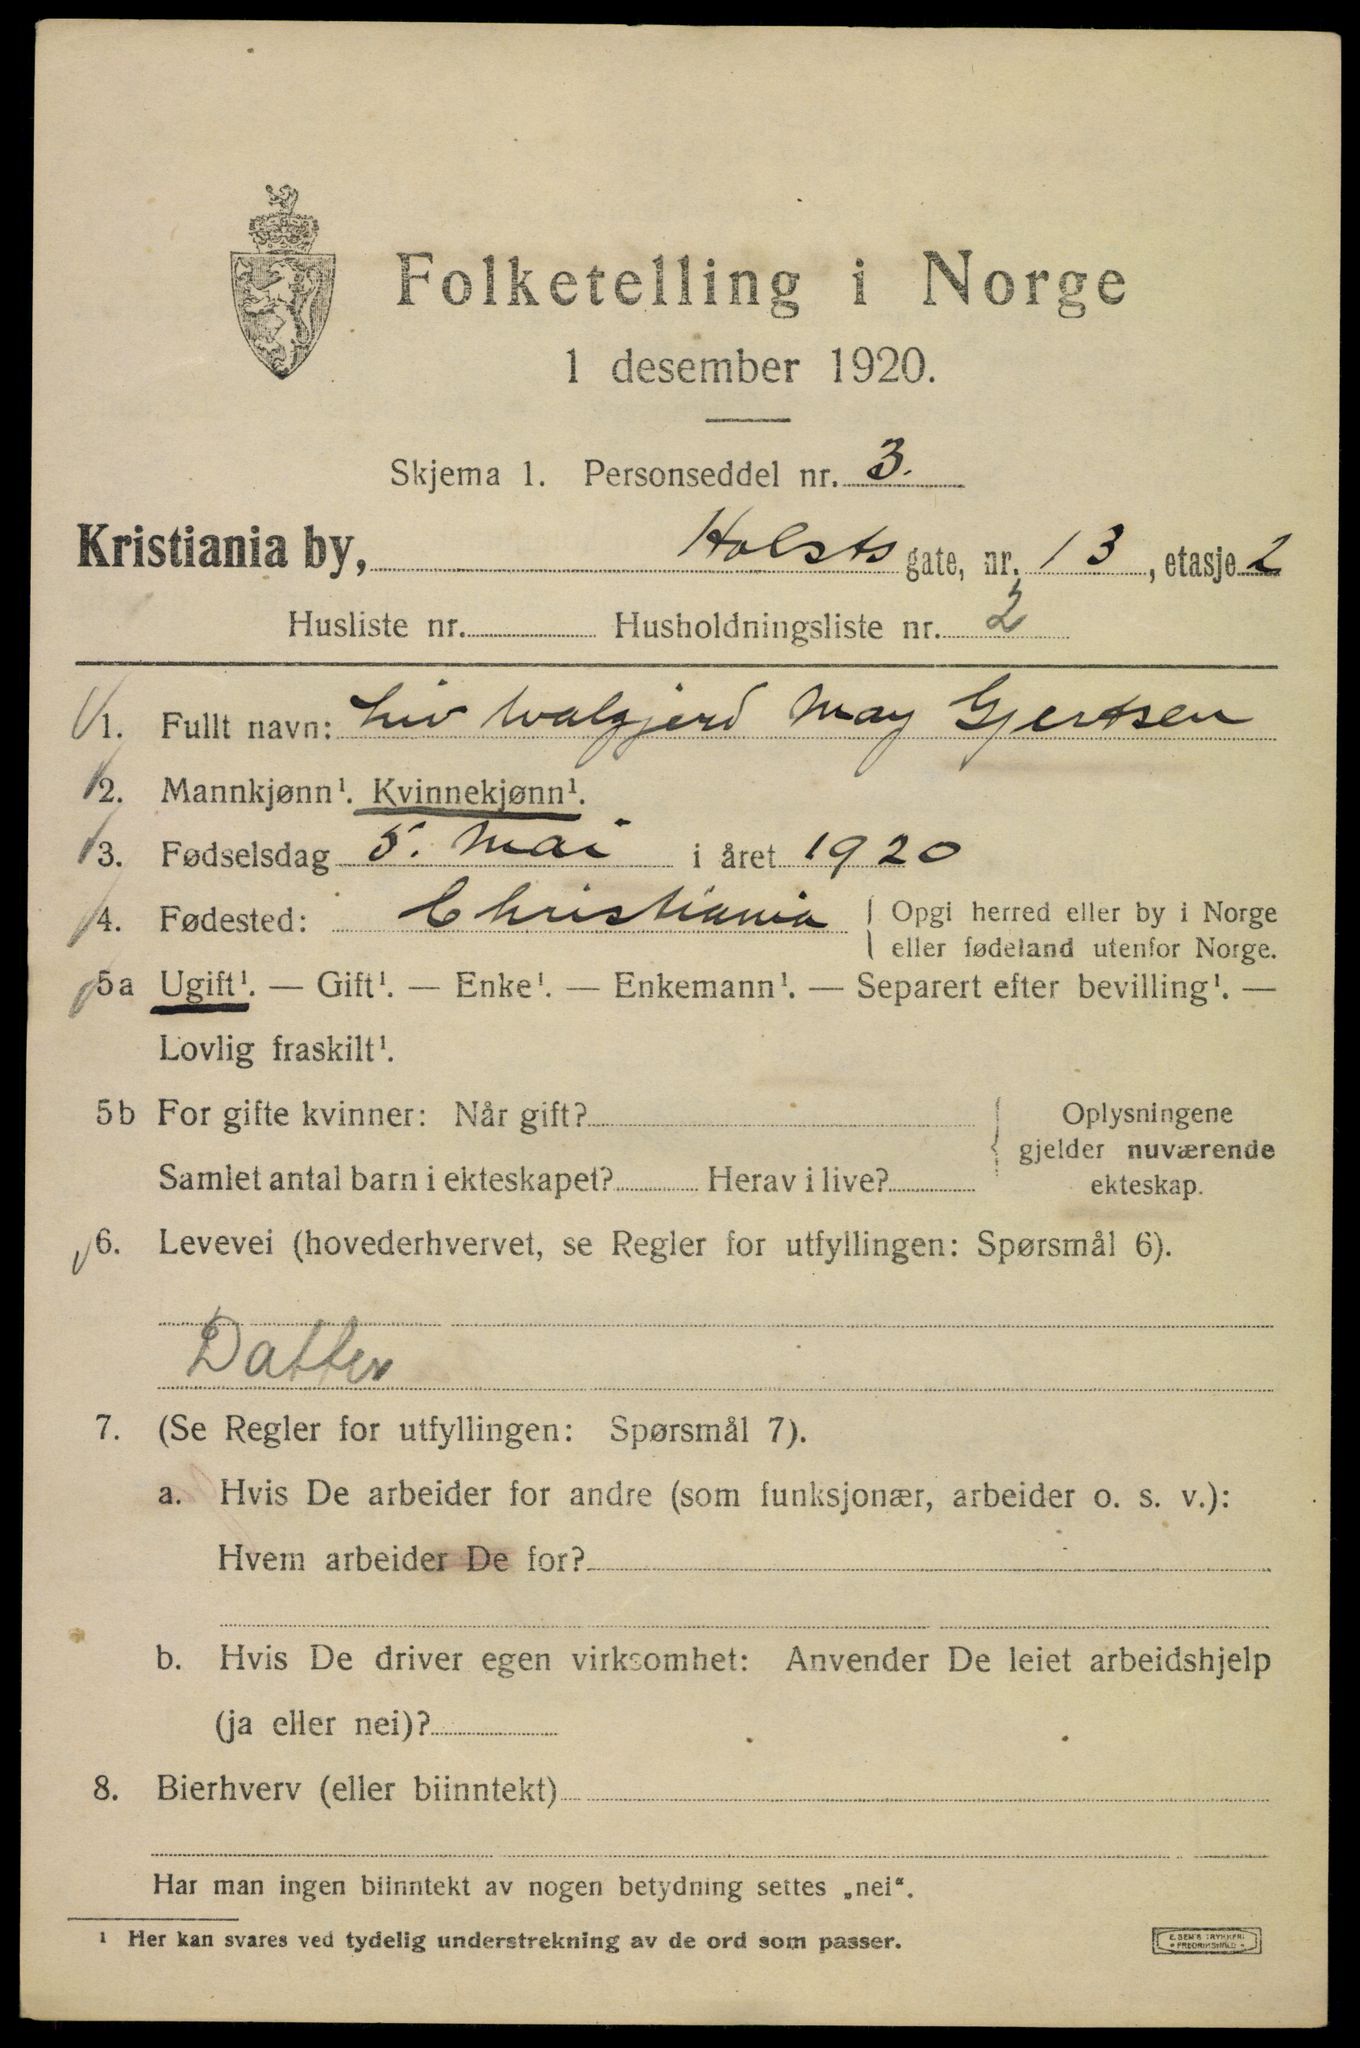 Folketelling i Norge
1 desember 1920.
Skjema 1. Personseddel nr. 3.
Kristiania by, Holsts gate, nr. 13, etasje 2
Husliste nr. Husholdningsliste nr. 2
1. Fullt navn: Liv Walgjerd May Gjertsen
2. Mannkjønn¹. Kvinnekjønn¹.
3. Fødselsdag 5. Mai i året 1920
4. Fødested: Christiania { Opgi herred eller by i Norge
eller fødeland utenfor Norge.
5a Ugift¹. — Gift¹. — Enke¹. — Enkemann¹. — Separert efter bevilling¹. —
Lovlig fraskilt¹.
5b For gifte kvinner: Når gift? { Oplysningene
gjelder nuværende
Samlet antal barn i ekteskapet? Herav i live? ekteskap.
6. Levevei (hovederhvervet, se Regler for utfyllingen: Spørsmål 6).
Datter
7. (Se Regler for utfyllingen: Spørsmål 7).
a. Hvis De arbeider for andre (som funksjonær, arbeider o. s. v.):
Hvem arbeider De for?
b. Hvis De driver egen virksomhet: Anvender De leiet arbeidshjelp
(ja eller nei)?
8. Bierhverv (eller biinntekt)
Har man ingen biinntekt av nogen betydning settes „nei“.
¹ Her kan svares ved tydelig understrekning av de ord som passer.
E. SEM'S TRYKKERI
FREDRIKSHALD